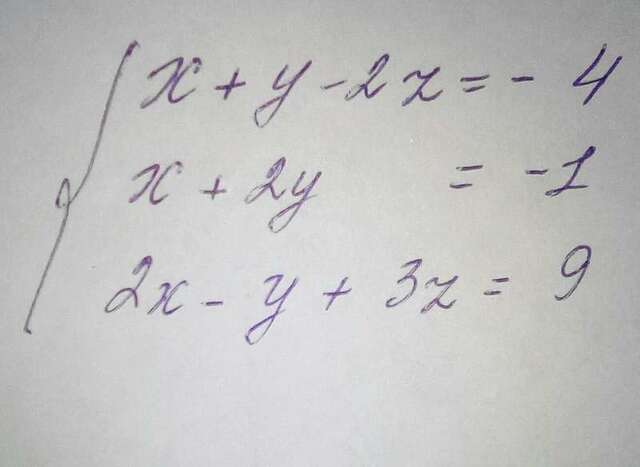 x + y - 2z = - 4
x + 2y = -1
2x - y + 3z = 9